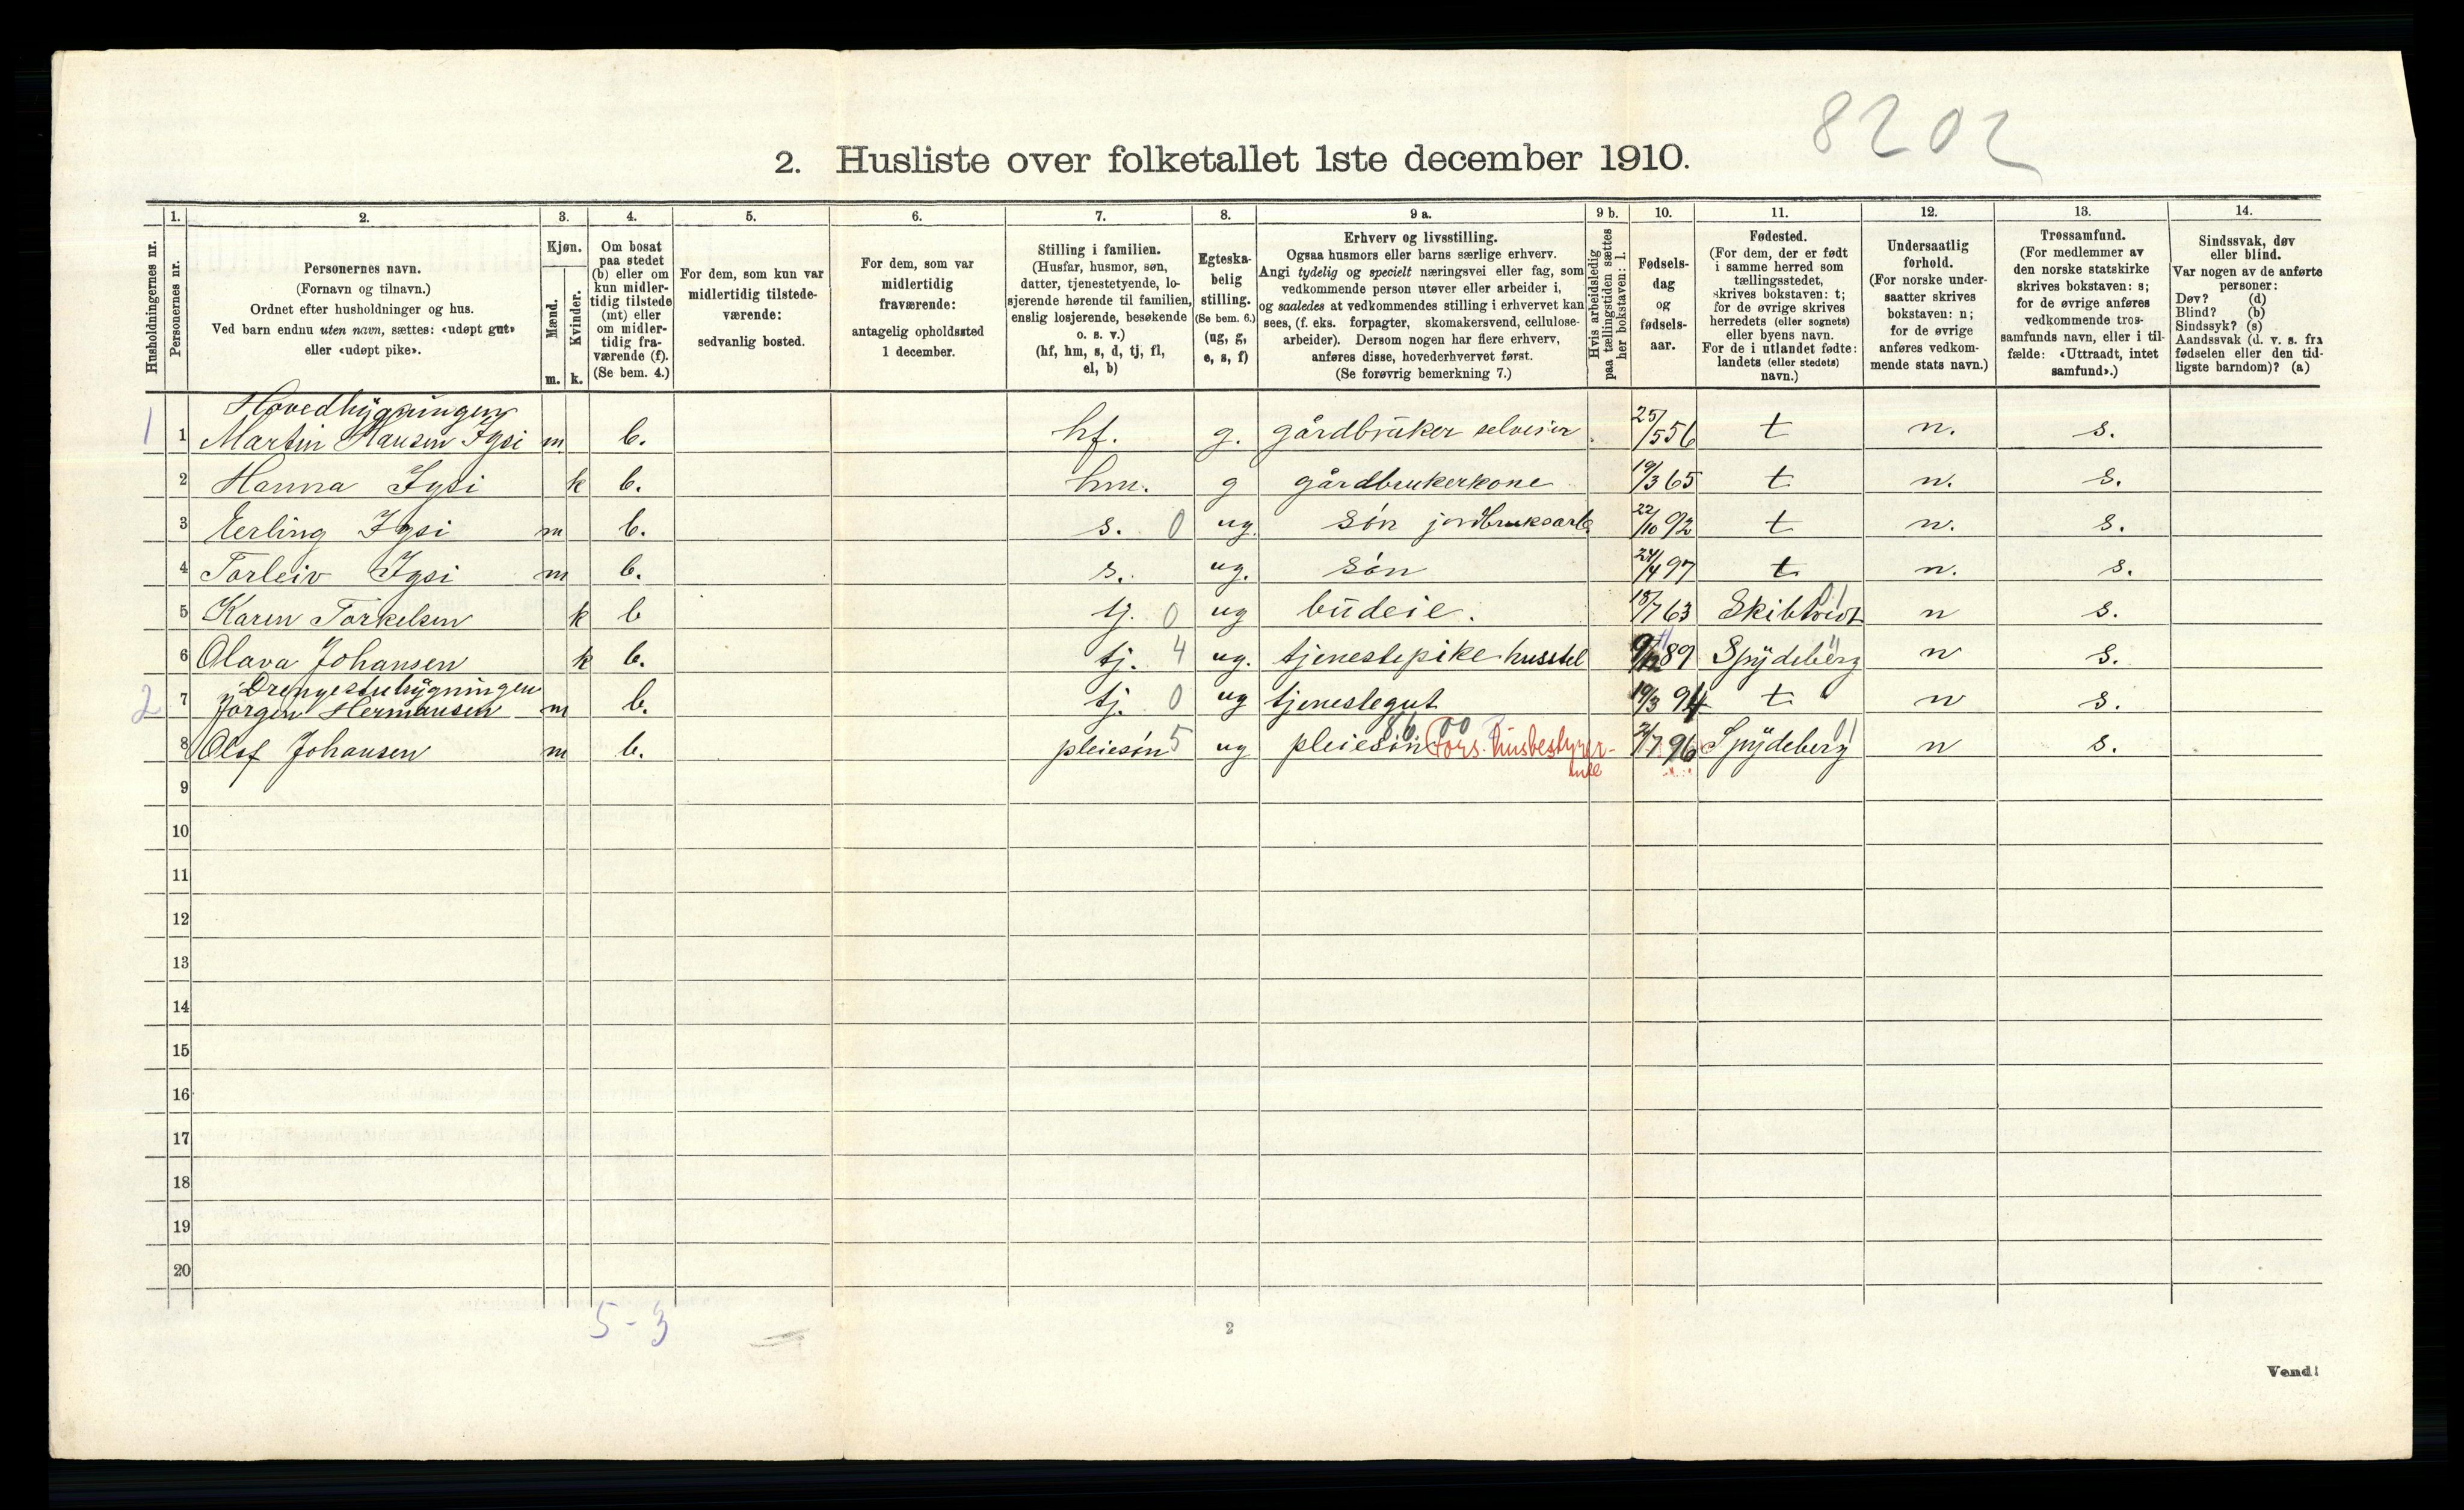 8202
2. Husliste over folketallet 1ste december 1910.
Husholdningernes nr.
1.
Personernes nr.
2.
Personernes navn.
(Fornavn og tilnavn.)
Ordnet efter husholdninger og hus.
Ved barn endnu uten navn, sættes: «udøpt gut»
eller «udøpt pike».
3.
Kjøn.
Mænd.
Kvinder.
m. k.
4.
Om bosat
paa stedet
(b) eller om
kun midler-
tidig tilstede
(mt) eller
om midler-
tidig fra-
værende (f).
(Se bem. 4.)
5.
For dem, som kun var
midlertidig tilstede-
værende:
sedvanlig bosted.
6.
For dem, som var
midlertidig
fraværende:
antagelig opholdssted
1 december.
7.
Stilling i familien.
(Husfar, husmor, søn,
datter, tjenestetyende, lo-
sjerende hørende til familien,
enslig losjerende, besøkende
o. s. v.)
(hf, hm, s, d, tj, fl,
el, b)
8.
Egteska-
belig
stilling.
(Se bem. 6.)
(ug, g,
e, s, f)
9 a.
Erhverv og livsstilling.
Ogsaa husmors eller barns særlige erhverv.
Angi tydelig og specielt næringsvei eller fag, som
vedkommende person utøver eller arbeider i,
og saaledes at vedkommendes stilling i erhvervet kan
sees, (f. eks. forpagter, skomakersvend, cellulose-
arbeider). Dersom nogen har flere erhverv,
anføres disse, hovederhvervet først.
(Se forøvrig bemerkning 7.)
9 b.
Hvis arbeidsledig
paa tællingstiden sættes
her bokstaven: l.
10.
Fødsels-
dag
og
fødsels-
aar.
11.
Fødested.
(For dem, der er født
i samme herred som
tællingsstedet,
skrives bokstaven: t;
for de øvrige skrives
herredets (eller sognets)
eller byens navn.
For de i utlandet fødte:
landets (eller stedets)
navn.)
12.
Undersaatlig
forhold.
(For norske under-
saatter skrives
bokstaven: n;
for de øvrige
anføres vedkom-
mende stats navn.)
13.
Trossamfund.
(For medlemmer av
den norske statskirke
skrives bokstaven: s;
for de øvrige anføres
vedkommende tros-
samfunds navn, eller i til-
fælde: «Uttraadt, intet
samfund».)
14.
Sindssvak, døv
eller blind.
Var nogen av de anførte
personer:
Døv? (d)
Blind? (b)
Sindssyk? (s)
Aandssvak (d. v. s. fra
fødselen eller den tid-
ligste barndom)? (a)
Hovedbygningen
1 1 Martin Hansen Igsi m b. hf. g. gårdbruker selveier 25/5 56 t n. s.
2 Hanna Igsi k b. hm. g gårdbrukerkone 19/3 65 t n. s.
3 Erling Igsi m b. s. 0 ug. søn jordbruksarb. 22/10 92 t n. s.
4 Torleiv Igsi m b. s. ug. søn 24/4 97 t n. s.
5 Karen Torkelsen k b tj. 0 ug budeie. 18/7 63 n s.
6 Olava Johansen k b. tj. 4 ug. tjenestepike husstel 9/12 89 Spydeberg n s.
Drengestubygningen
2 7 Jørgen Hermansen m b. tj. 0 ug tjenestegut 19/3 94 t n s.
8 Olaf Johansen m b. pleiesøn 5 ug pleiesøn Fors. husbestyrer- 96 Spydeberg n s.
9
10
11
12
13
14
15
16
17
18
19
20
5-3
2
Vend!